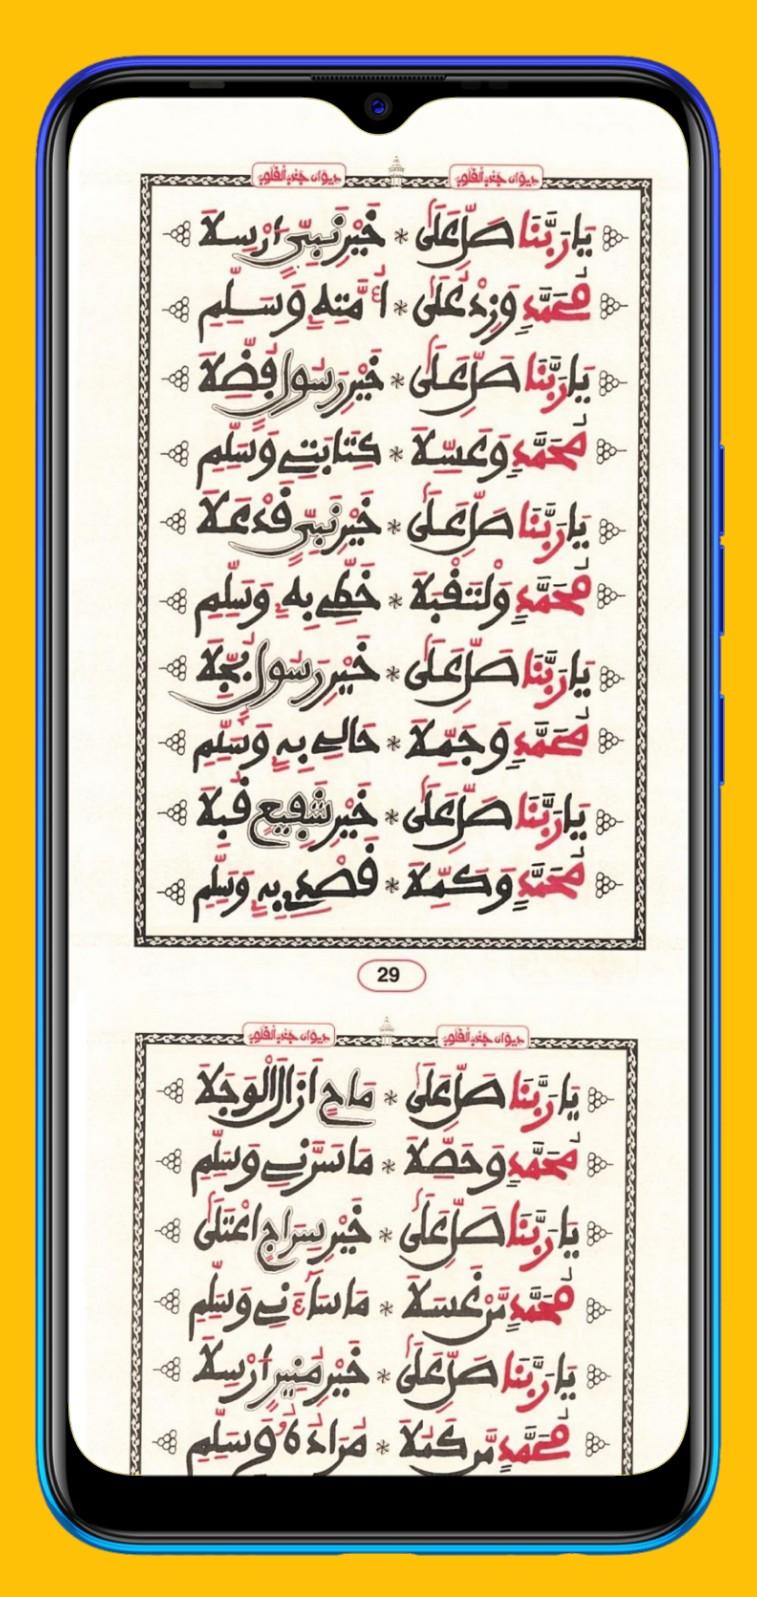 ديوان جذب القلوب ديوان جذب القلوب
يا ربنا صل على * خير نبي أرسلا
محمد وزد على * أمته وسلم
يا ربنا صل على * خير رسول فضلا
محمد وغسلا * كتابتي وسلم
يا ربنا صل على * خير نبي قد علا
محمد ولتقبلا * خطي به وسلم
يا ربنا صل على * خير رسول بجلا
محمد وجملا * حالي به وسلم
يا ربنا صل على * خير شفيع قبلا
محمد وكملا * قصدي به وسلم
29
ديوان جذب القلوب ديوان جذب القلوب
يا ربنا صل على * ماح أزال الوجلا
محمد وحصلا * ما سرني وسلم
يا ربنا صل على * خير سراج اعتلى
محمد من غسلا * ما ساءني وسلم
يا ربنا صل على * خير منير أرسلا
محمد من كملا * مراده وسلم